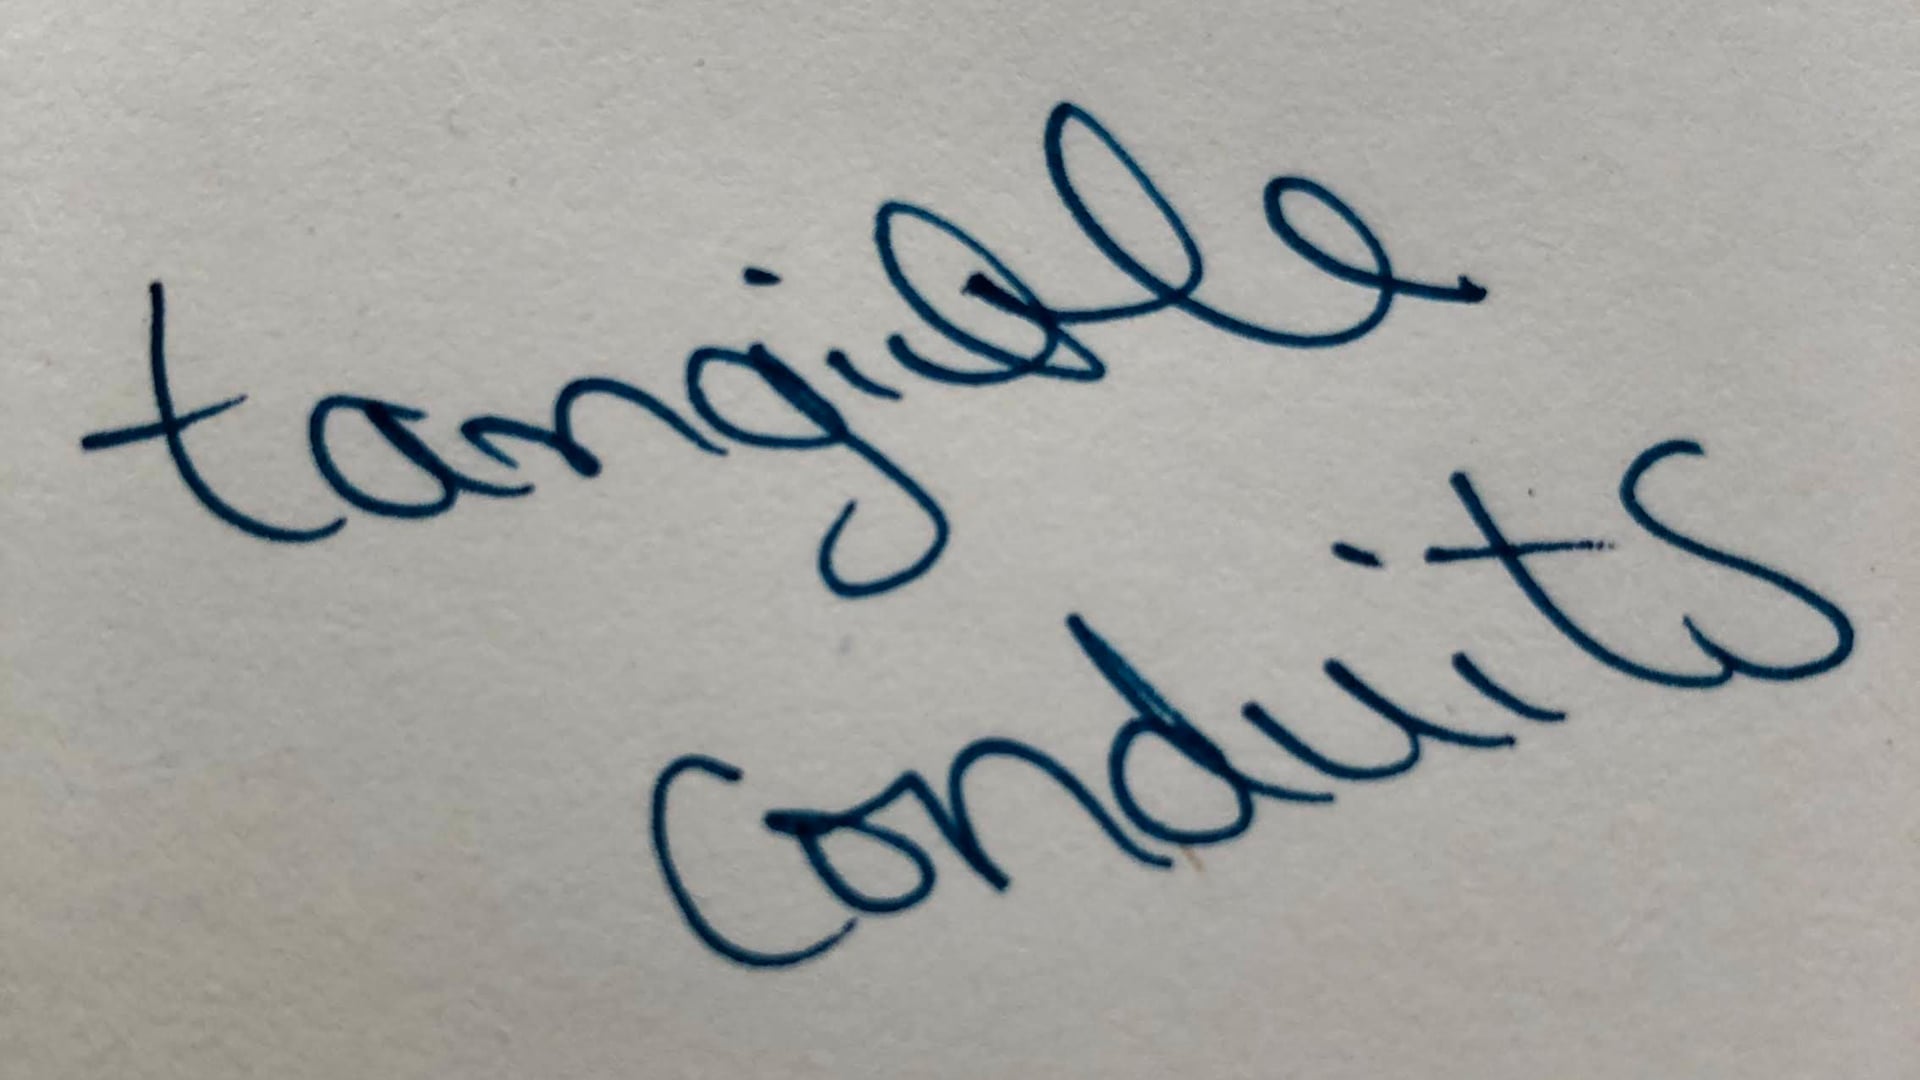 tangible
conduits